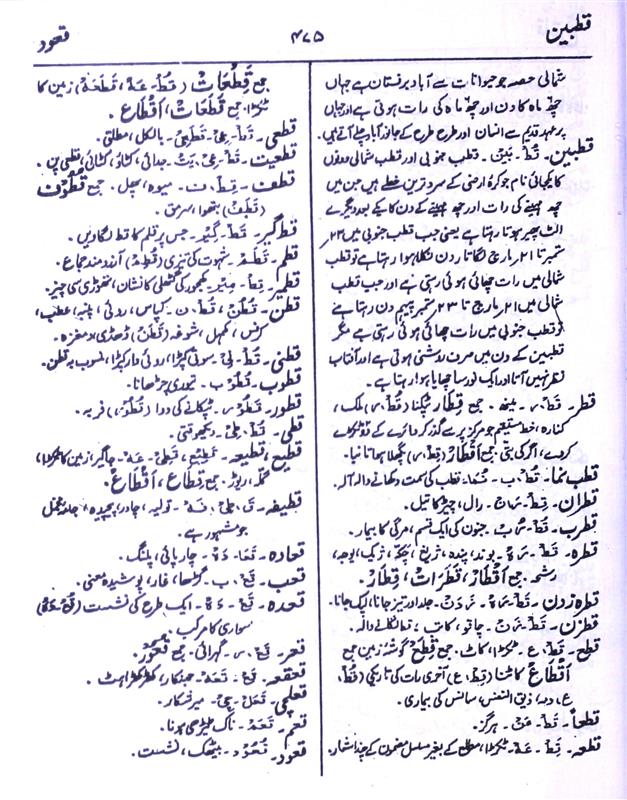 قطبین
۴۷۵
قعود
شمالی حصہ جو حیوانات سے آباد برفستان ہے جہاں
چھ ماہ کا دن اور چھ ماہ کی رات ہوتی ہے اور جہاں
پر عہد قدیم سے انسان اور طرح طرح کے جانور آباد چلے آتے ہیں.
قطبین۔ قُطْ۔ بَیْن۔ قطب جنوبی اور قطب شمالی دونوں
کا یکجائی نام جو کرۂ ارضی کے سرد ترین خطے ہیں جن میں
چھ مہینے کی رات اور چھ مہینے کے دن کا یکے بعد دیگرے
الٹ پھیر ہوتا رہتا ہے یعنی جب قطب جنوبی میں ۲۳
ستمبر تا ۲۱ مارچ لگاتار دن نکلا ہوا رہتا ہے تو قطب
شمالی میں رات چھائی ہوئی رہتی ہے اور جب قطب
شمالی میں ۲۱ مارچ تا ۲۳ ستمبر پیہم دن رہتا ہے
تو قطب جنوبی میں رات چھائی ہوئی رہتی ہے مگر
قطبین کے دن میں صرف روشنی ہوتی ہے اور آفتاب
نظر نہیں آتا اور ایک نور سا چھایا ہوا رہتا ہے.
قطر۔ قَطْ۔ ر۔ مینھ۔ جمع قِطار ٹپکنا (قُطْ، ر) ملک،
کنارہ، خط مستقیم جو مرکز پر سے گذر کر دائرے کے دو ٹکڑے
کر دے، اگر کی بتی۔ جمع اَقْطار (قِطْ، ر) پگھلا ہوا تانبا.
قطب نما۔ قُطْ۔ ب۔ نُمَا۔ قطب کی سمت دکھانے والا آلہ.
قطران۔ قِطْ۔ رَان۔ رال، چیڑ کا تیل.
قطرب۔ قُطْ۔ رُب۔ جنون کی ایک قسم، مرگی کا بیمار.
قطرہ۔ قَطْ۔ رَہْ۔ بوند،
رشحہ۔ جمع اَقْطار، قَطَرَات، قِطار.
قطرہ زدن۔ قَطْ۔ رَہْ۔ زَدَن۔ جلد اور تیز جانا، لپک جانا.
قط زن۔ قَطْ۔ زَن۔ چاقو، کاتب، قط لگانے والہ.
قطع۔ قَطْ، ع۔ ٹکڑا، کاٹ۔ جمع قِطَع گوشۂ زمین جمع
اَقْطاع کاٹنا (قِطْ، ع) آخری رات کی تاریکی (قُطْ،
ع) دمہ، ضیق النفس، سانس کی بیماری.
قطعاً۔ قَطْ۔ عَن۔ ہرگز.
قطعہ۔ قِطْ۔ عَہْ۔ ٹکڑا، مطلع کے بغیر مسلسل مضمون کے چند اشعار.
جمع قِطْعَات (قُطْ۔ عَہْ، قَطَعَہ) زمین کا
ٹکڑا۔ جمع قَطَعَات، اَقْطاع.
قطعی۔ قَطْ۔ عِیْ، قَطَعِی۔ بالکل، مطلق.
قطعیت۔ قَطْ۔ عِیْ۔ یَتْ۔ جدائی، کٹاؤ، کٹائی، قطعی پن.
قطف۔ قِطْ۔ ف۔ میوہ، پھل۔ جمع قطوف
(قَطَف) بتھوا، سرمق.
قط گیر۔ قَطْ۔ گِیْر۔ جس پر قلم کا قط لگاویں.
قطم۔ قَطَمْ۔ شہوت کی تیزی (قَطِمْ) آرزو مند جماع.
قطمیر۔ قِطْ۔ مِیْر۔ کھجور کی گٹھلی کا نشان، تھوڑی سی چیز.
قطن۔ قُطُن، قُطْ، ن۔ کپاس، روئی، پنبہ، عطب،
کرفس، کہل، شوغہ (قَطَن)
قطنی۔ قُطْ۔ نِی۔ سوتی کپڑا، روئی دار کپڑا، منسوب بہ قطن.
قطوب۔ قُطُوْب۔ تیوری چڑھانا.
قطور۔ قَطُوْر۔ ٹپکانے کی دوا (قُطُوْر) فربہ.
قطی۔
قطیع، قطیعہ۔ قَطِیْع، قَطِیْ۔ عَہْ۔ جاگیر، زمین کا ٹکڑا،
گلّہ، ریوڑ۔ جمع قِطاع، اَقْطاع.
قطیفہ۔ قَ۔ طِیْ۔ فَہْ۔ تولیہ، چادر پیچیدہ،
جو مشہور ہے.
قعادہ۔ قَعَا۔ دَہْ۔ چارپائی، پلنگ.
قعب۔ قَعْ۔ ب۔ گڑھا، غار، پوشیدہ معنی.
قعدہ۔ قَعْ۔ دَہْ۔ ایک طرح کی نشست (قُعْ۔ دَہْ)
سواری کا مرکب.
قعر۔ قَعْ، ر۔ گہرائی۔ جمع قعور.
قعقعہ۔ قَعْ۔ قَعَہْ۔ جھنکار، کھڑکھڑاہٹ.
قعلچی۔ قَعَلْ۔ چِیْ۔ میر شکار.
قعم۔ قَعَمْ۔ ناک ٹیڑھی ہونا.
قعود۔ قُعُوْد۔ بیٹھک، نشست.